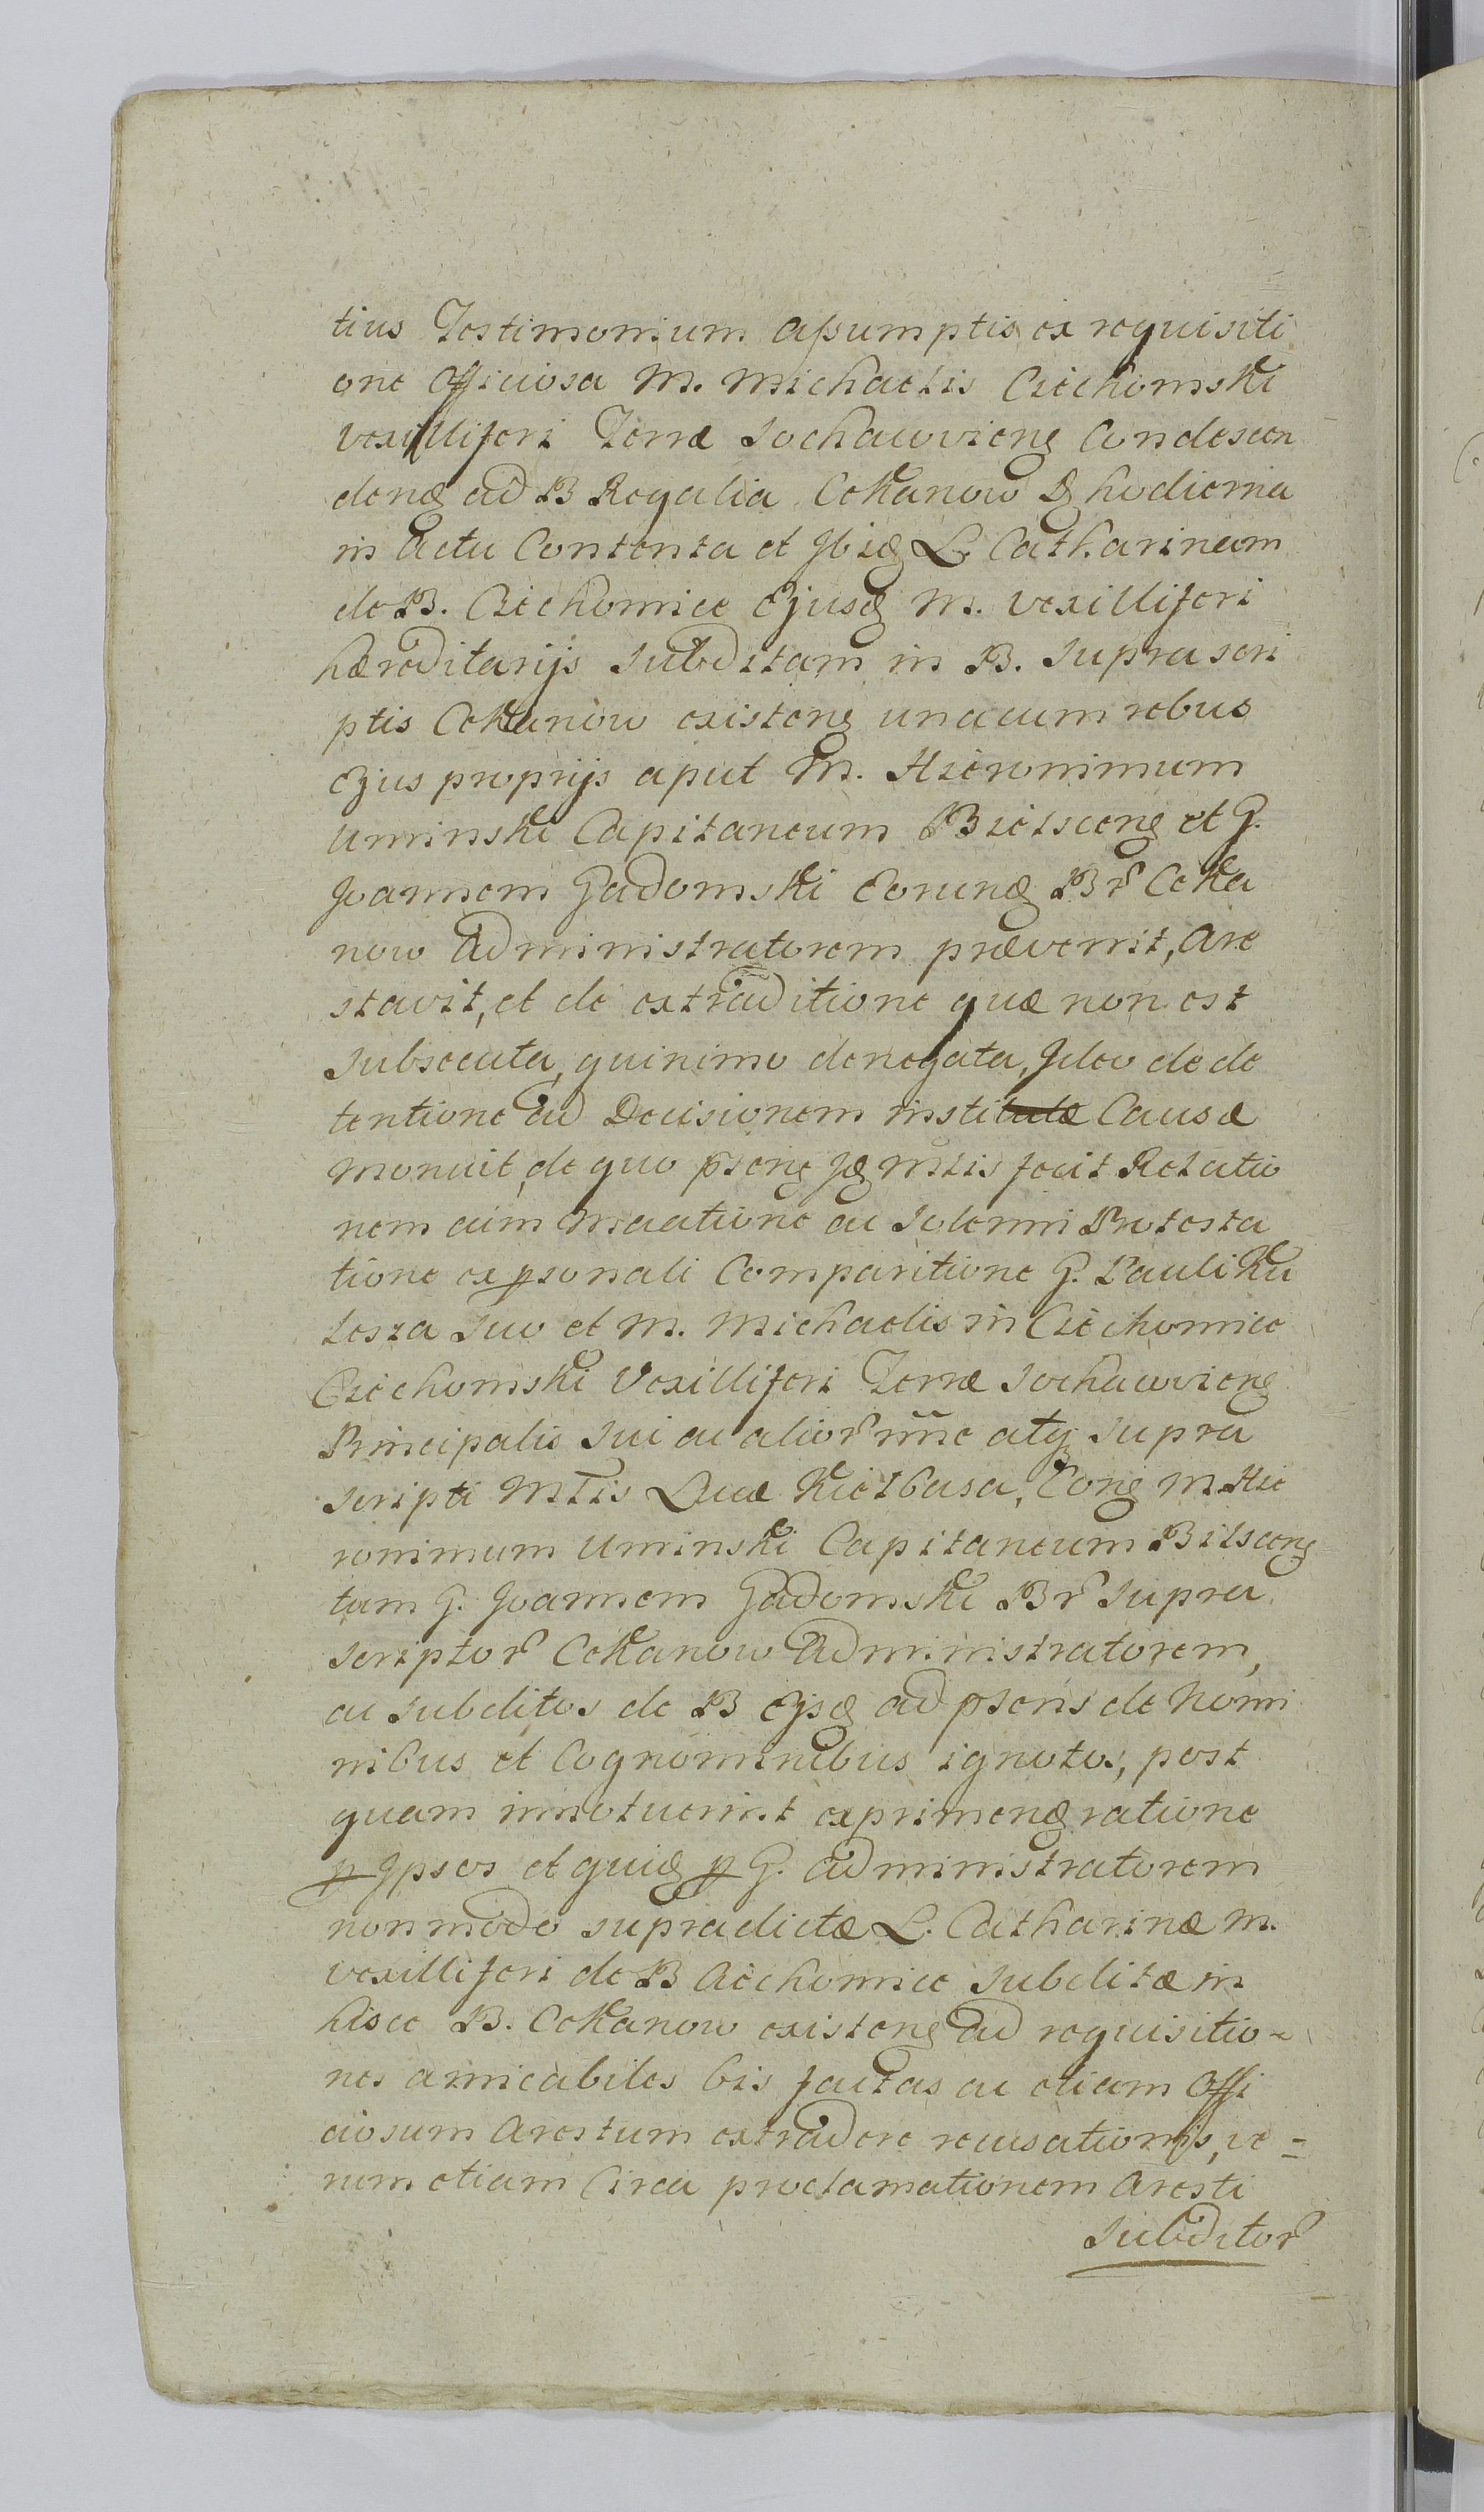 tius Testimonium aßumptis ex requisiti
one Officiosa M. Michaelis Cziechomski
Vexilliferi Terræ Sochawvienȩ Condescen
denȩ ad B Regalia Cekanow Dȩ hodierna
in actu Contenta et Ibiȩ L. Catharinam
de B. Cziechomice Ejusȩ M. Vexilliferi
hæreditarijs Subditam in B. Suprascri
ptis Cekanow existenȩ unacum rebus
Ejus proprijs aput M. Hieronimum
Uminski Capitaneum Bielscenȩ et G.
Joannem Gadomski Eorunȩ Br Ceka
now Administratorem prævenit, are
stavit, et de extraditione quæ non est
Subsecuta, quinimo denegata, Ideo de de
tentione ad Decisionem institutæ Causæ
monuit, de quo p̄senȩ Iȩ Mtlis fecit Relatio
nem cum Maatione ac Solenni Protesta
tione ex psonali Comparitione G. Pauli Ku
lesza Suo et M. Michaelis in Cziechomice
Cziechomski Vexilliferi Terræ Sochawvienȩ
Principalis Sui ac alior nn̄e atq̨ Supra
scripti Mtlis Lucæ Kiełbasa, Conȩ M. Hie
ronimum Uminski Capitaneum Bilscenȩ
tum G. Joannem Gadomski Br Supra
scriptor Cekanow Administratorem,
ac Subditos de B Ejsȩ ad psens de Nomi
nibus et Cognominibus ignotos, post
quam innotuerint exprimenȩ ratione
p Ipsos et quiȩ p G. administratorem
non modo supradictæ L. Catharinæ M.
Vexilliferi de B Ciechomice Subditæ in
hisce B. Cekanow existenȩ ad requisitio-
nes amicabiles bis factas ac etiam Offi
ciosum Arestum extradere recusationis, ve=
rum etiam Circa proclamationem Aresti
Subditor